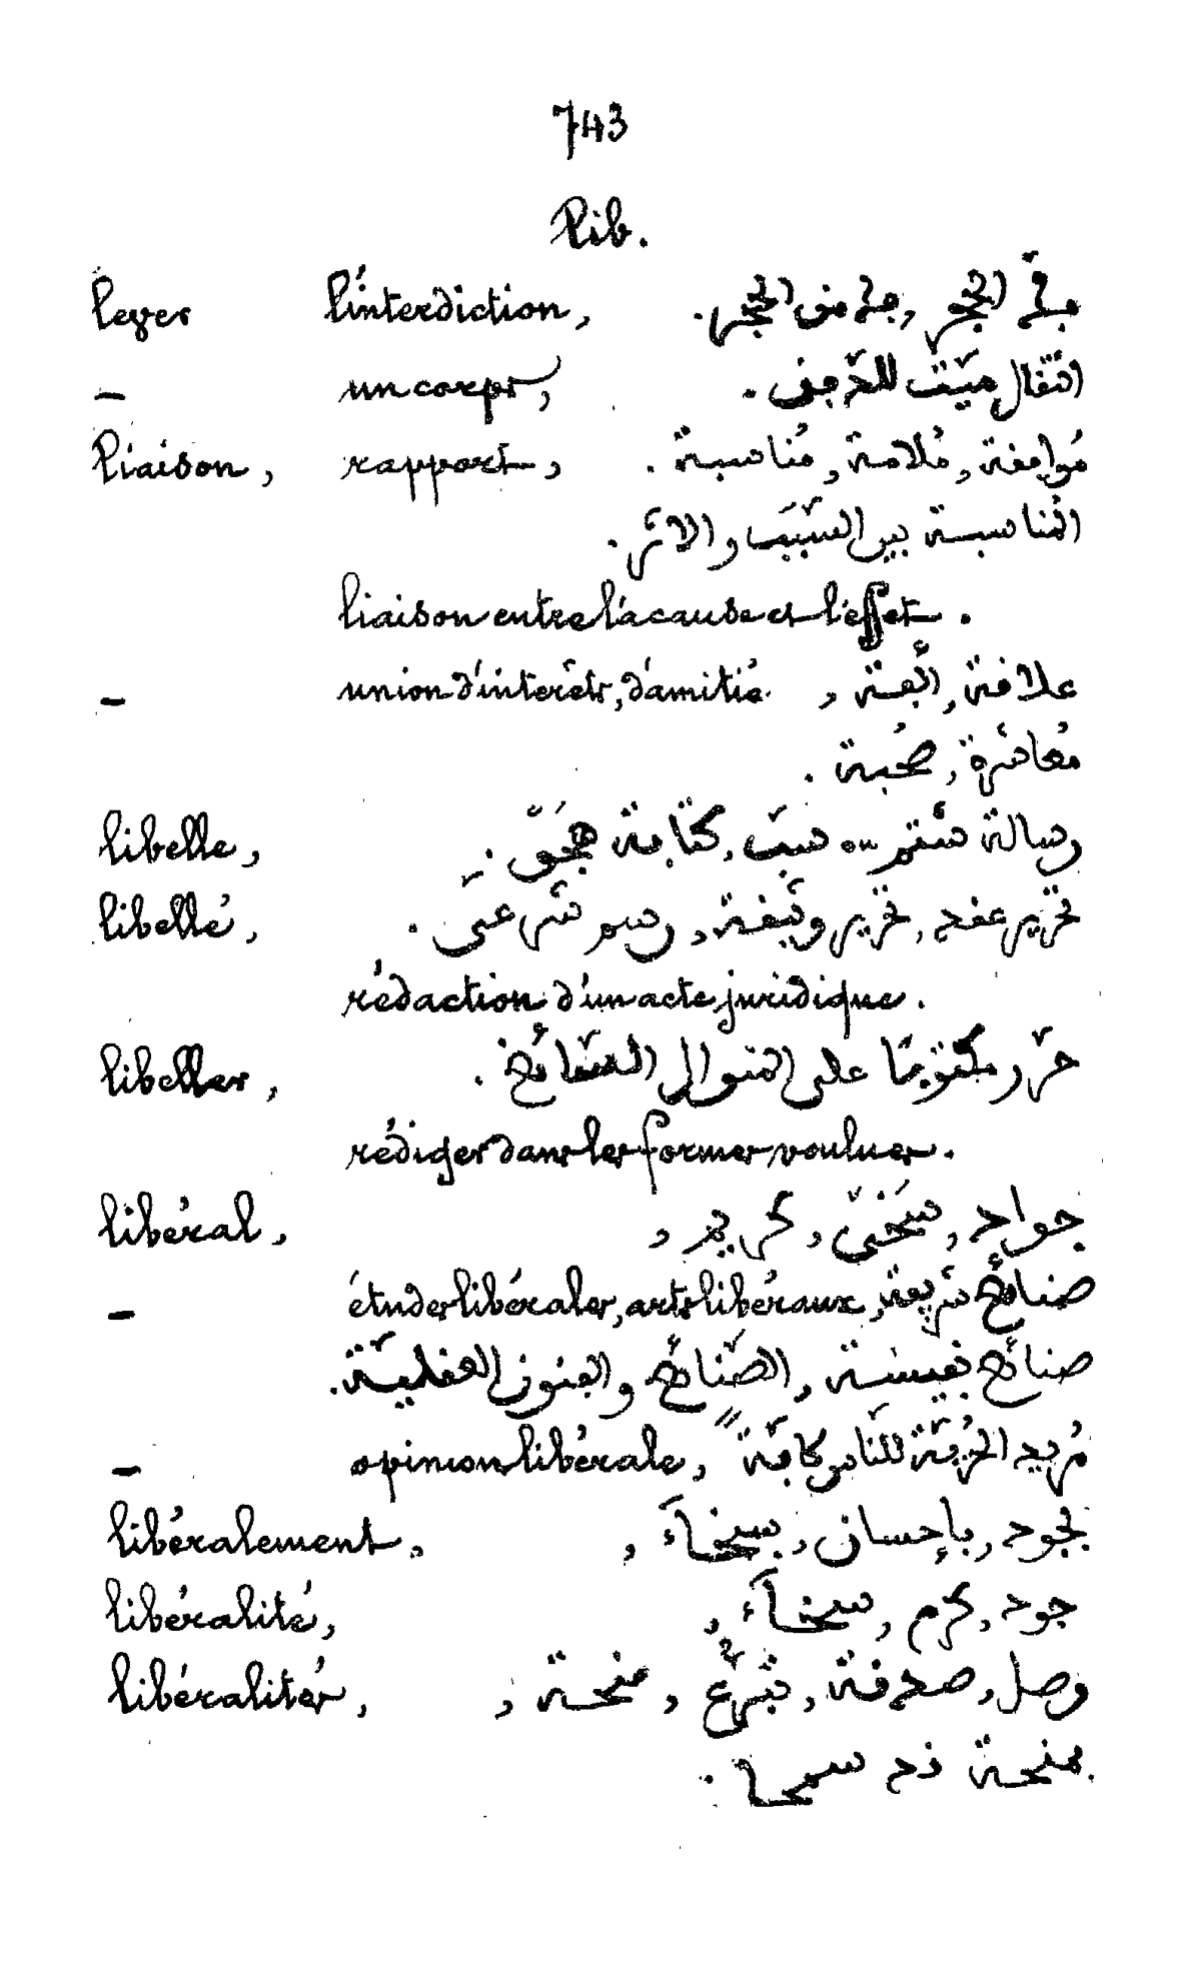 743
Lib.
lever l'interdiction, الحجر, من الحجر.
— un corps, انتقال ميّت للدّفن.
Liaison, rapport, مُوافقة, مُلامة, مُناسبة.
المُناسبة بين السّبَب والاثَر.
liaison entre la cause et l'effet.
— union d'intérêts, d'amitié. علاقة, أُلفة,
مُعاشَرة, صُحبة.
libelle, رسالة شتم ou سبّ, كتابة هَجْو.
libellé, تحرير عقد, تحرير وثيقة, رسم شرعىّ.
rédaction d'un acte juridique.
libeller, حرّر مكتوبًا على المنوال
rédiger dans les formes voulues.
libéral, جواد, سَخىّ, كريم,
— études libérales, arts libéraux, صنائع شريفة,
صنائع نفيسة, الصّنائع والفنون العقليّة.
— opinion libérale, مُريد الحُرّيّة للنّاس كافّة
libéralement, بجود, بإحسان, بسخآء,
libéralité, جود, كرم, سخآء,
libéralités, وصل, صدقة, تبرّع, منحة,